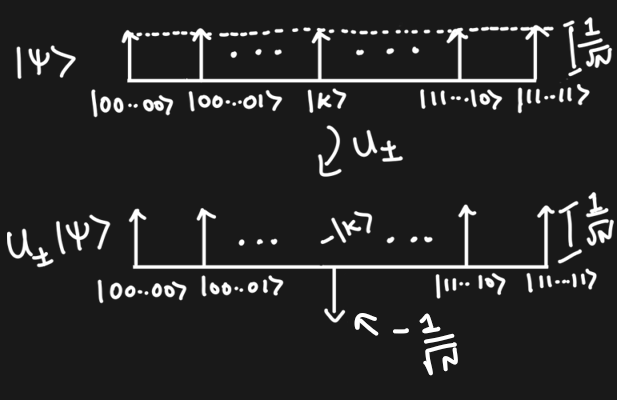 |Ψ> ... ... 1/√N
|00..00> |00...01> |k> |11...10> |11...11>
U±
U±|Ψ> ... -|k> ... 1/√N
|00..00> |00...01> |11..10> |11...11>
-1/√N